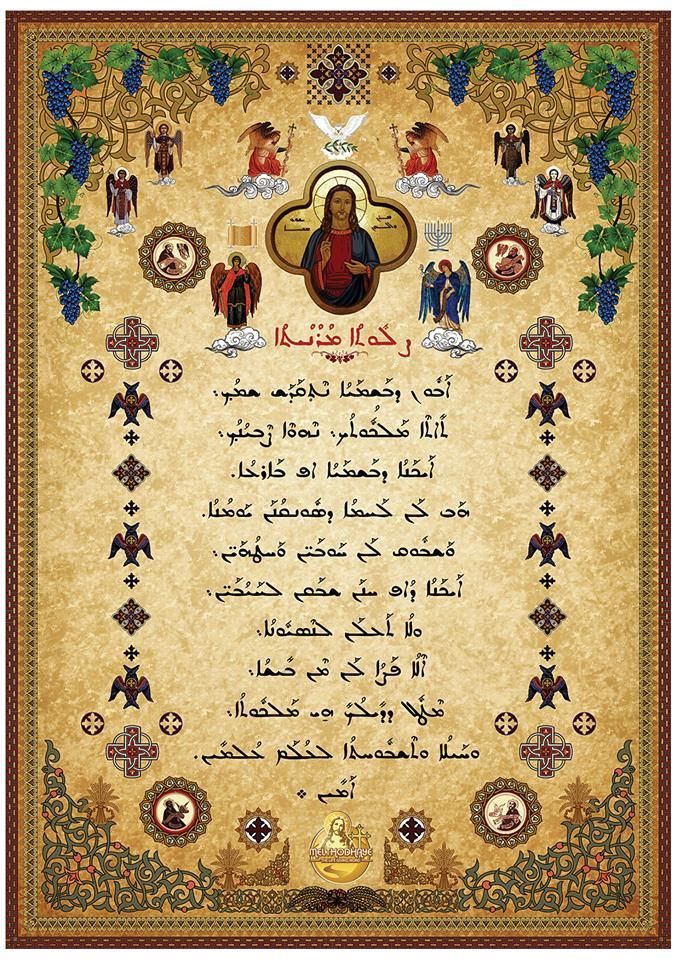 ܨܠܘܬܐ ܡܪܢܝܬܐ
ܐܒܘܢ ܕܒܫܡܝܐ ܢܬܩܕܫ ܫܡܟ܆
ܬܐܬܐ ܡܠܟܘܬܟ܆ ܢܗܘܐ ܨܒܝܢܟ܆
ܐܝܟܢܐ ܕܒܫܡܝܐ ܐܦ ܒܐܪܥܐ.
ܗܒ ܠܢ ܠܚܡܐ ܕܣܘܢܩܢܢ ܝܘܡܢܐ.
ܘܫܒܘܩ ܠܢ ܚܘܒܝ̈ܢ ܘܚܛܗܝ̈ܢ܆
ܐܝܟܢܐ ܕܐܦ ܚܢܢ ܫܒܩܢ ܠܚܝܒܝ̈ܢ܆
ܘܠܐ ܬܥܠܢ ܠܢܣܝܘܢܐ܆
ܐܠܐ ܦܨܐ ܠܢ ܡܢ ܒܝܫܐ܆
ܡܛܠ ܕܕܝܠܟ ܗܝ ܡܠܟܘܬܐ܆
ܘܚܝܠܐ ܘܬܫܒܘܚܬܐ ܠܥܠܡ ܥܠܡܝܢ.
ܐܡܝܢ ܀